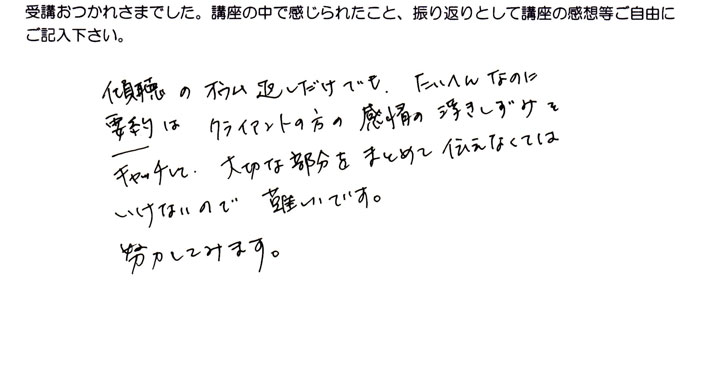 受講おつかれさまでした。講座の中で感じられたこと、振り返りとして講座の感想等ご自由に
ご記入下さい。
傾聴のオウム返しだけでも、たいへんなのに
要約はクライアントの方の感情の浮きしずみを
キャッチして、大切な部分をまとめて伝えなくては
いけないので難しいです。
努力してみます。